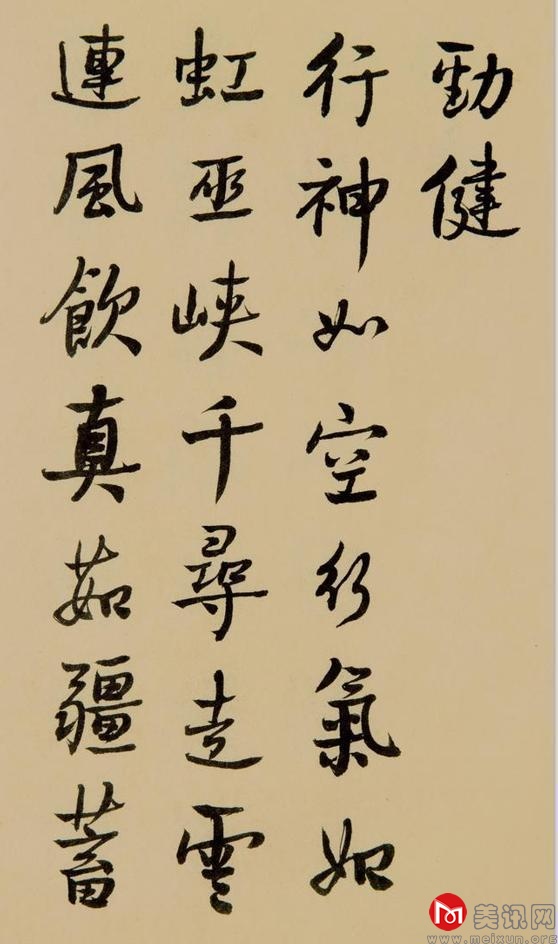 勁健
行神如空行氣如
虹巫峽千尋走雲
連風飲真茹疆蓄
美讯网
www.meixun.org